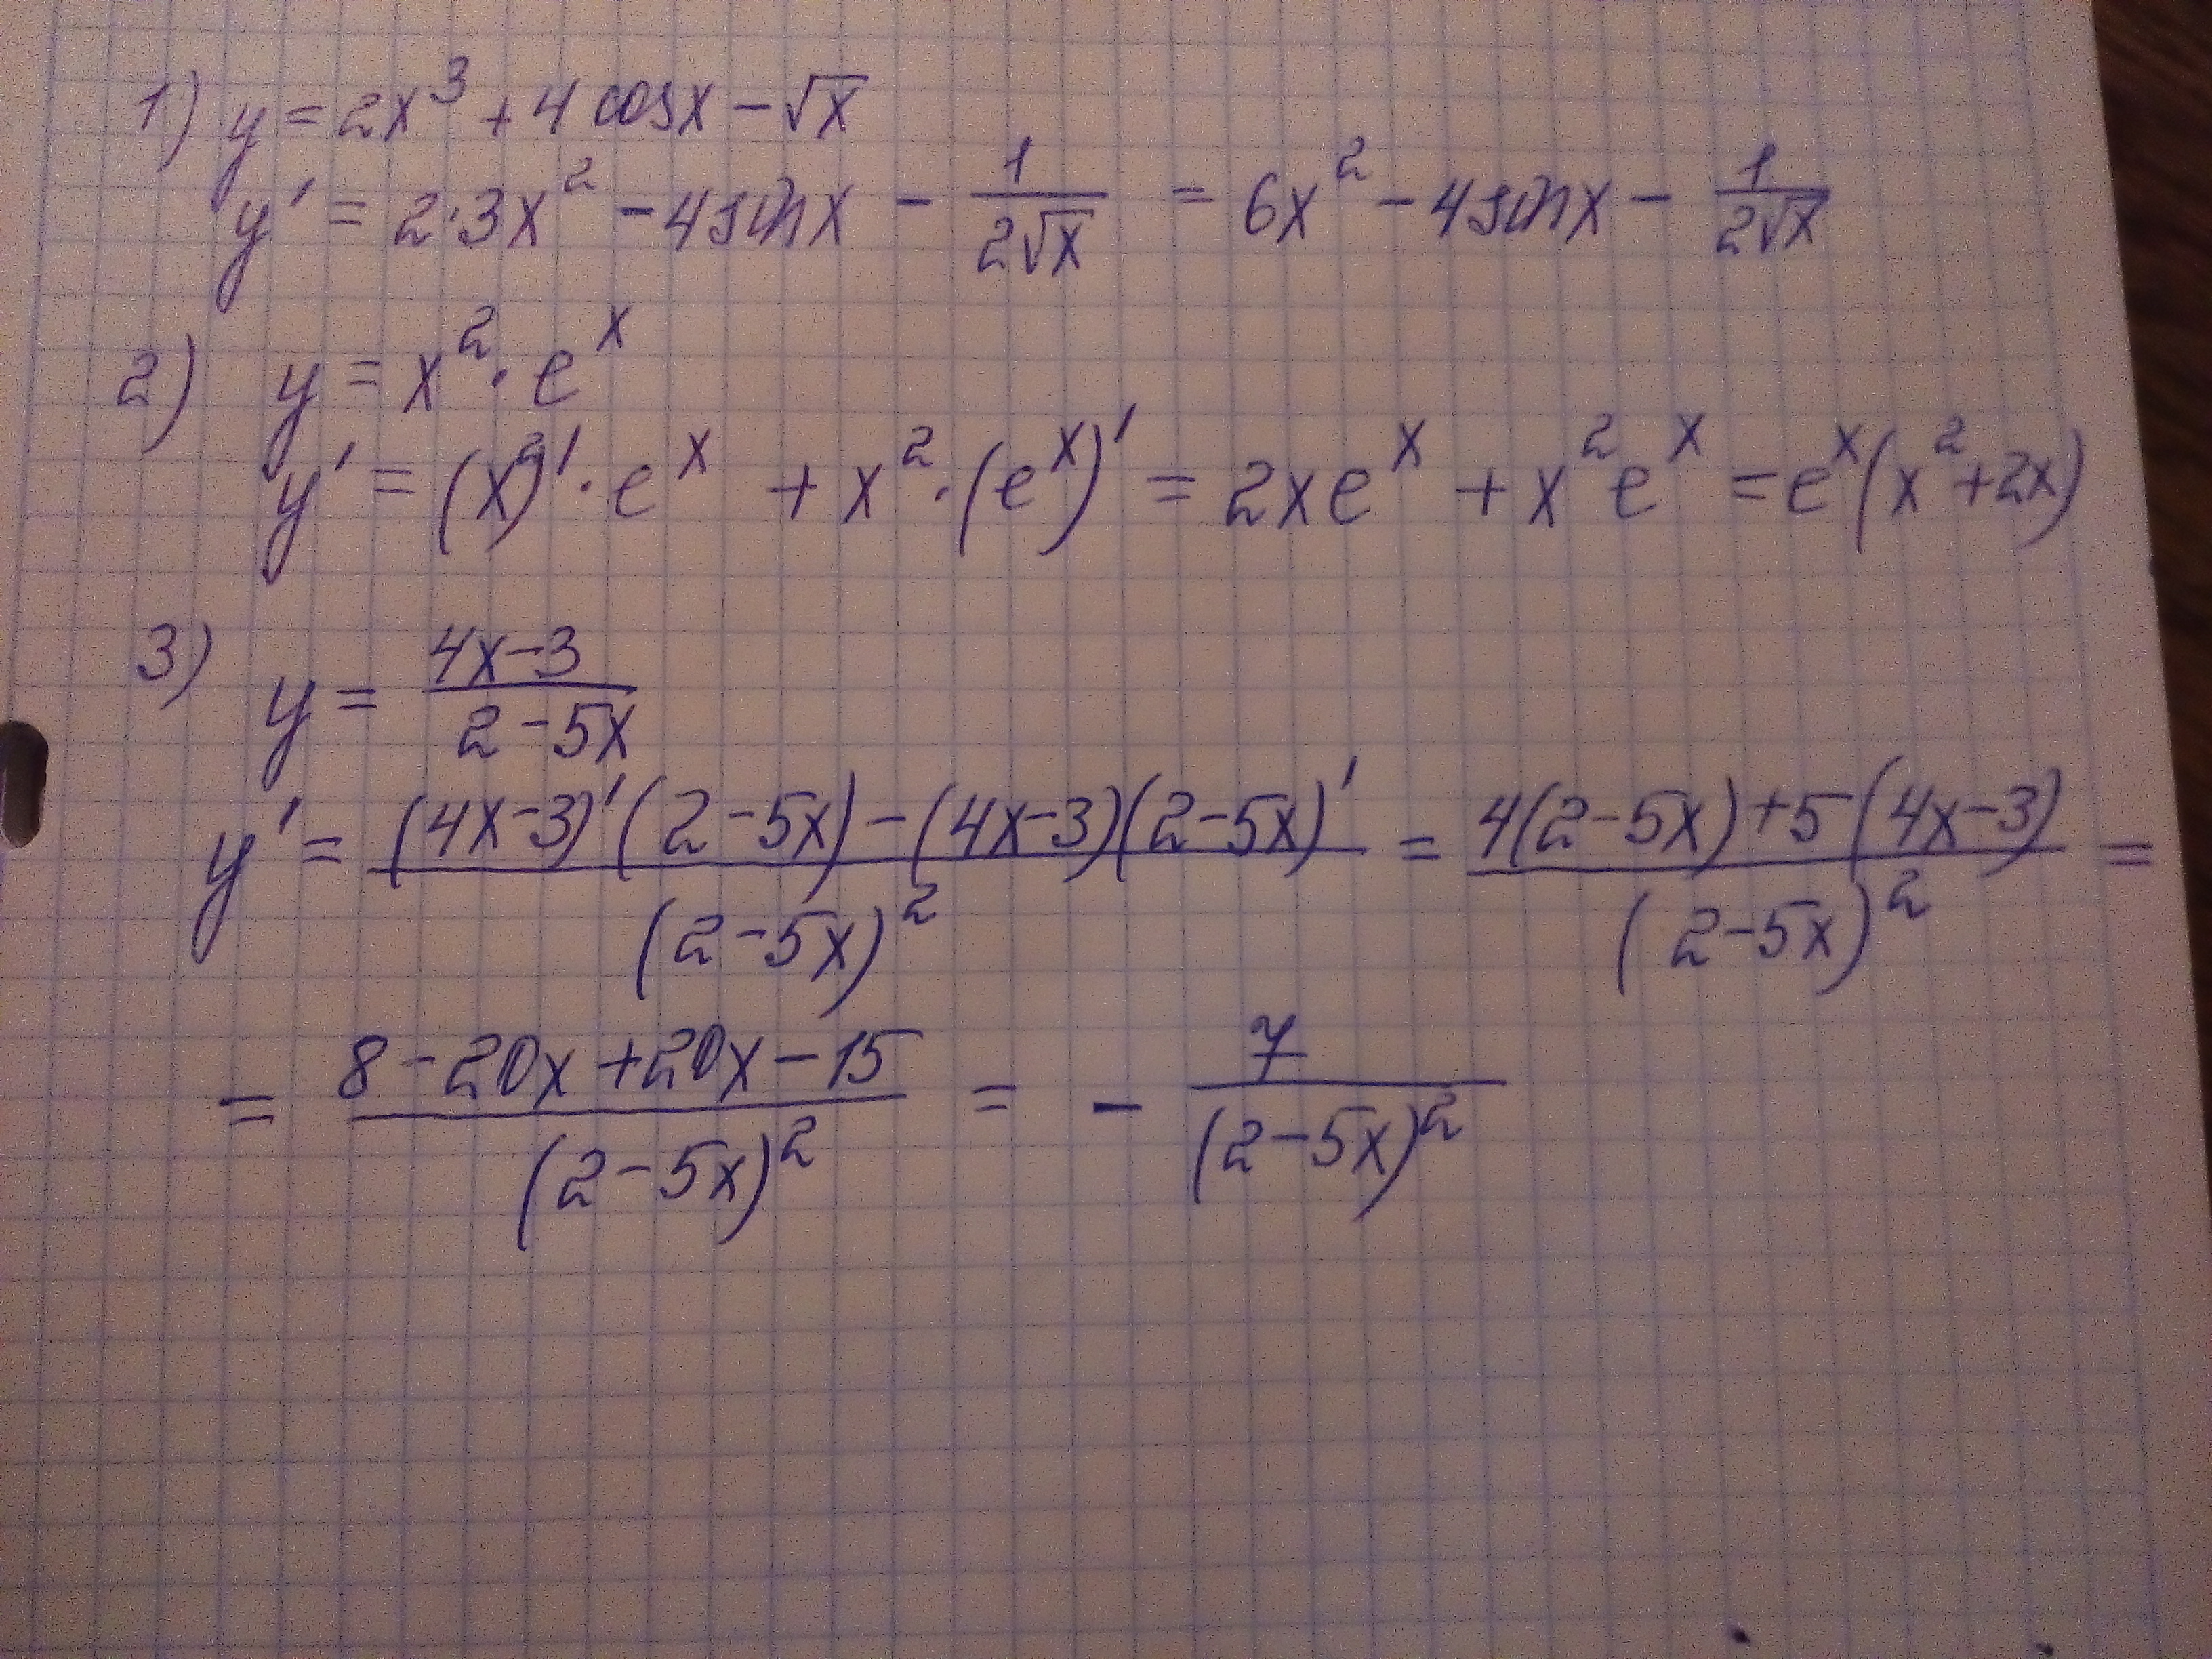 1) y = 2x³ + 4 cosx - √x
y' = 2·3x² - 4sinx - 1/(2√x) = 6x² - 4sinx - 1/(2√x)
2) y = x² · eˣ
y' = (x²)' · eˣ + x² · (eˣ)' = 2xeˣ + x²eˣ = eˣ(x² + 2x)
3) y = (4x-3)/(2-5x)
y' = ((4x-3)'(2-5x) - (4x-3)(2-5x)')/(2-5x)² = (4(2-5x) + 5(4x-3))/(2-5x)² =
= (8 - 20x + 20x - 15)/(2-5x)² = - 7/(2-5x)²